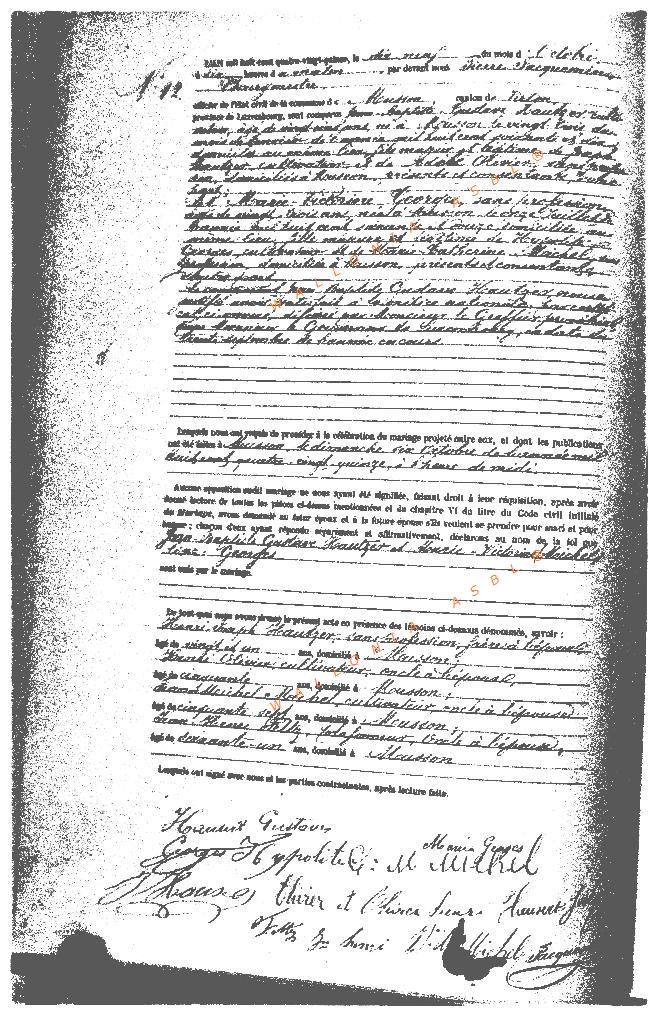 L'AN mil huit cent quatre-vingt-quinze, le dix neuf du mois d'Octobre
à dix heures d u matin, par devant nous Pierre Jacquemin
Bourgmestre
N° 12
officier de l'état civil de la commune de Musson, canton de Virton,
province de Luxembourg, sont comparus Jean-Baptiste Gustave Hautzer culti-
vateur, âgé de vingt cinq ans, né à Musson le vingt trois du
mois de Janvier de l'année mil huit cent soixante et dix
domicilié au même lieu, fils majeur et légitime de Joseph
Hautzer cultivateur et de Adèle Olivier, sans profes-
sion, domiciliés à Musson, présents et consentants
Et Marie-Victorine Georges, sans profession,
âgée de vingt trois ans, née à Musson le onze Juillet de
l'année mil huit cent soixante et douze domiciliée au
même lieu, fille mineure et légitime de Hippolite
Georges, cultivateur et de Marie Catherine Michel, sans
profession, domiciliés à Musson, présents et consentants
d'autre part
Le comparant Jean Baptiste Gustave Hautzer nous a
justifié avoir satisfait à la milice nationale
délivré par Monsieur le Greffier provincial
pour Monsieur le Gouverneur du Luxembourg, en date du
trente septembre de l'année en cours
Lesquels nous ont requis de procéder à la célébration du mariage projeté entre eux, et dont les publications
ont été faites à Musson, le dimanche six Octobre de l'année mil
huit cent quatre vingt quinze, à heure de midi.
Aucune opposition audit mariage ne nous ayant été signifiée, faisant droit à leur réquisition, après avoir
donné lecture de toutes les pièces ci-dessus mentionnées et du chapitre VI du titre du Code civil intitulé
du Mariage, avons demandé au futur époux et à la future épouse s'ils veulent se prendre pour mari et pour
femme ; chacun d'eux ayant répondu séparément et affirmativement, déclarons au nom de la loi que
Jean-Baptiste Gustave Hautzer et Marie-Victorine
Georges
sont unis par le mariage.
De tout quoi nous avons dressé le présent acte en présence des témoins ci-dessous dénommés, savoir :
Henri Joseph Hautzer, sans profession, frère à l'époux
âgé de vingt et un ans, domicilié à Musson;
Henri Olivier, cultivateur, oncle à l'époux,
âgé de cinquante ans, domicilié à Musson;
Michel, cultivateur, oncle à l'épouse
âgé de cinquante sept ans, domicilié à Musson;
Jean Henri Feltz, oncle à l'épouse,
âgé de soixante-un ans, domicilié à Musson
Lesquels ont signé avec nous et les parties contractantes, après lecture faite.
Hautzer Gustave
Maria Georges
Georges Hyppolite G: M Michel
Olivier et Olivier henri
Feltz Jn henri Michel Jacquemin
WALLONIA ASBL ©
WALLONIA ASBL ©